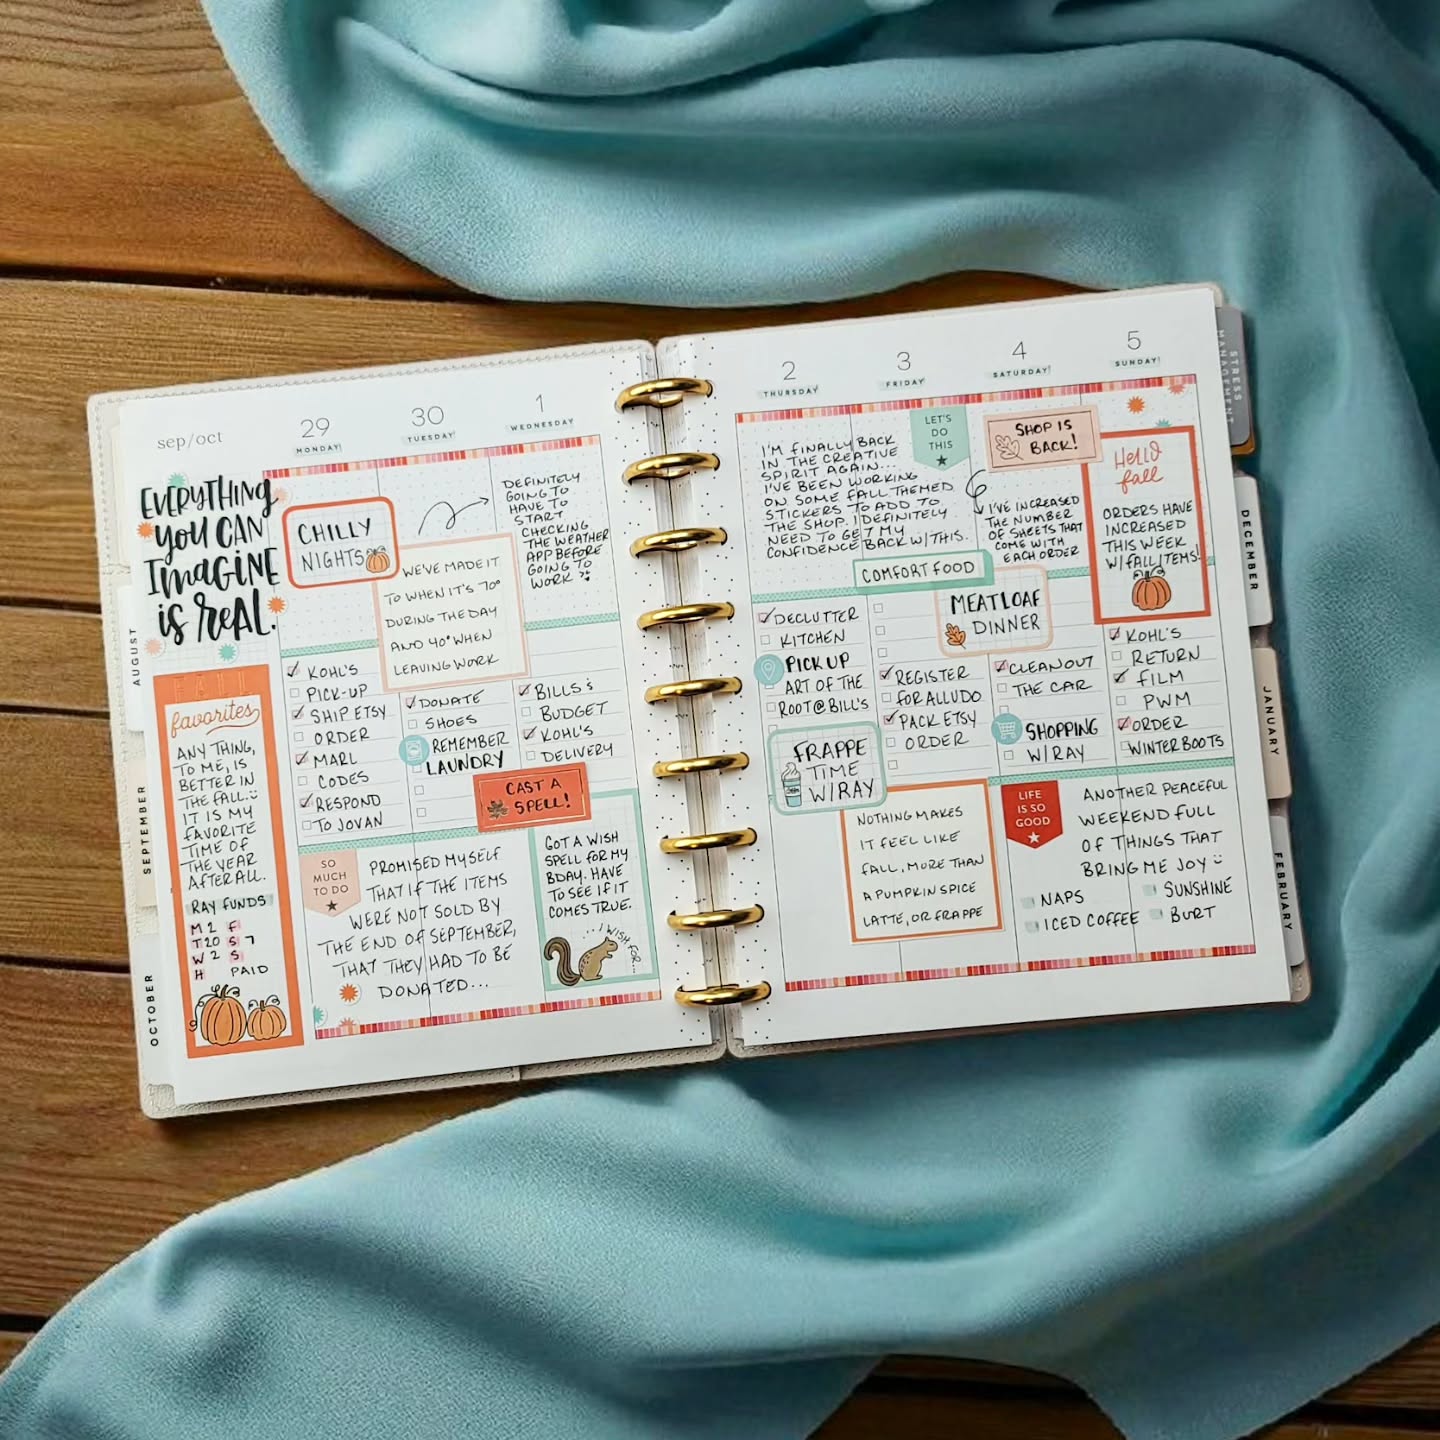 sep/oct
EVERYTHING
YOU CAN
IMAGINE
is REAL.
FALL
favorites
ANY THING,
TO ME, IS
BETTER IN
THE FALL.
IT IS MY
FAVORITE
TIME OF
THE YEAR
AFTER ALL.
RAY FUNDS
M 2 F
T 20 S 7
W 2 S
H PAID
29
MONDAY
30
TUESDAY
1
WEDNESDAY
CHILLY
NIGHTS
WE'VE MADE IT
TO WHEN IT'S 70°
DURING THE DAY
AND 40° WHEN
LEAVING WORK
DEFINITELY
GOING TO
HAVE TO
START
CHECKING
THE WEATHER
APP BEFORE
GOING TO
WORK
KOHL'S
PICK-UP
SHIP ETSY
ORDER
MARL
CODES
RESPOND
TO JOVAN
DONATE
SHOES
REMEMBER
LAUNDRY
BILLS &
BUDGET
KOHL'S
DELIVERY
CAST A
SPELL!
SO
MUCH
TO DO
PROMISED MYSELF
THAT IF THE ITEMS
WERE NOT SOLD BY
THE END OF SEPTEMBER,
THAT THEY HAD TO BE
DONATED...
GOT A WISH
SPELL FOR MY
BDAY. HAVE
TO SEE IF IT
COMES TRUE.
...I WISH FOR...
2
THURSDAY
3
FRIDAY
4
SATURDAY
5
SUNDAY
I'M FINALLY BACK
IN THE CREATIVE
SPIRIT AGAIN...
I'VE BEEN WORKING
ON SOME FALL THEMED
STICKERS TO ADD TO
THE SHOP. I DEFINITELY
NEED TO GET MY
CONFIDENCE BACK W/THIS.
LET'S
DO
THIS
SHOP IS
BACK!
I'VE INCREASED
THE NUMBER
OF SHEETS THAT
COME WITH
EACH ORDER
Hello
fall
ORDERS HAVE
INCREASED
THIS WEEK
W/FALL ITEMS!
COMFORT FOOD
MEATLOAF
DINNER
DECLUTTER
KITCHEN
PICK UP
ART OF THE
ROOT@BILL'S
FRAPPE
TIME
W/RAY
REGISTER
FOR ALLUDO
PACK ETSY
ORDER
CLEAN OUT
THE CAR
SHOPPING
W/RAY
KOHL'S
RETURN
FILM
PWM
ORDER
WINTER BOOTS
NOTHING MAKES
IT FEEL LIKE
FALL, MORE THAN
A PUMPKIN SPICE
LATTE, OR FRAPPE
LIFE
IS SO
GOOD
ANOTHER PEACEFUL
WEEKEND FULL
OF THINGS THAT
BRING ME JOY
NAPS
SUNSHINE
ICED COFFEE
BURT
AUGUST
SEPTEMBER
OCTOBER
STRESS
MANAGEMENT
DECEMBER
JANUARY
FEBRUARY